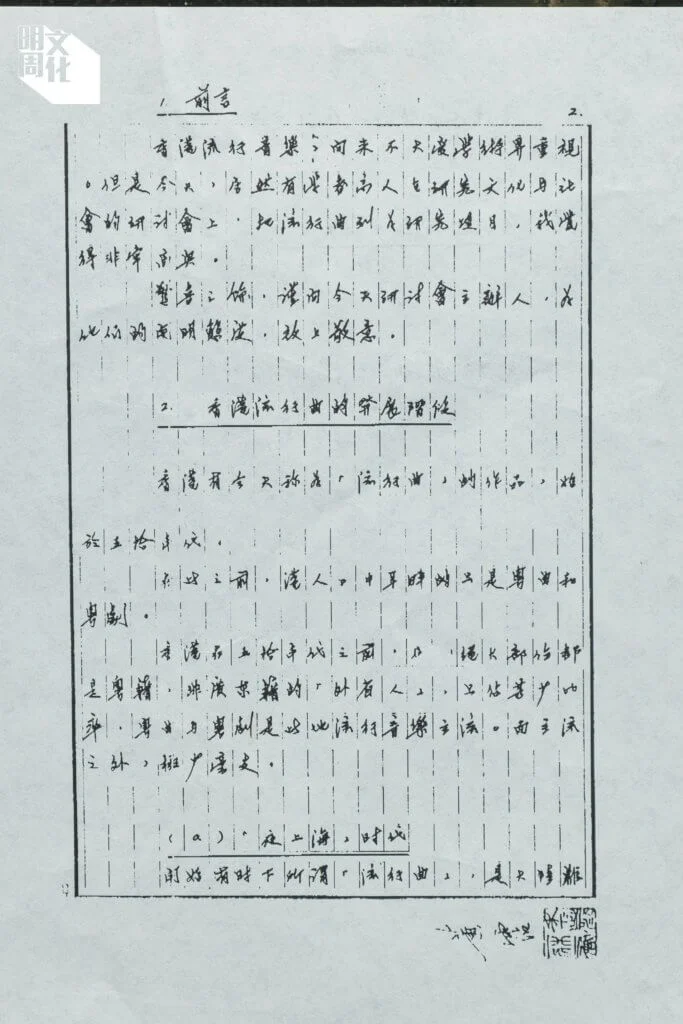 明周文化
1. 前言
2.
香港流行音樂,向來不大受學術界重視
。但是今天,居然有學者高人在研究文化與社
會的研討會上,把流行曲列為研究項目,我覺
得非常高興。
之餘,謹向今天研討會主辦人,為
他們的開明態度,致上敬意。
2. 香港流行曲的發展階段
香港有今天称為「流行曲」的作品,始
於五拾年代。
在此之前,港人口中耳畔的只是粵曲和
粵劇。
香港在五拾年代之前,絕大部份都
是粵籍,非廣東籍的「外省人」,只佔甚少比
率,粵曲與粵劇是此地流行音樂主流。而主流
之外,極少變支。
(a)「夜上海」時代
開始有時下所謂「流行曲」,是大陸難
黃霑